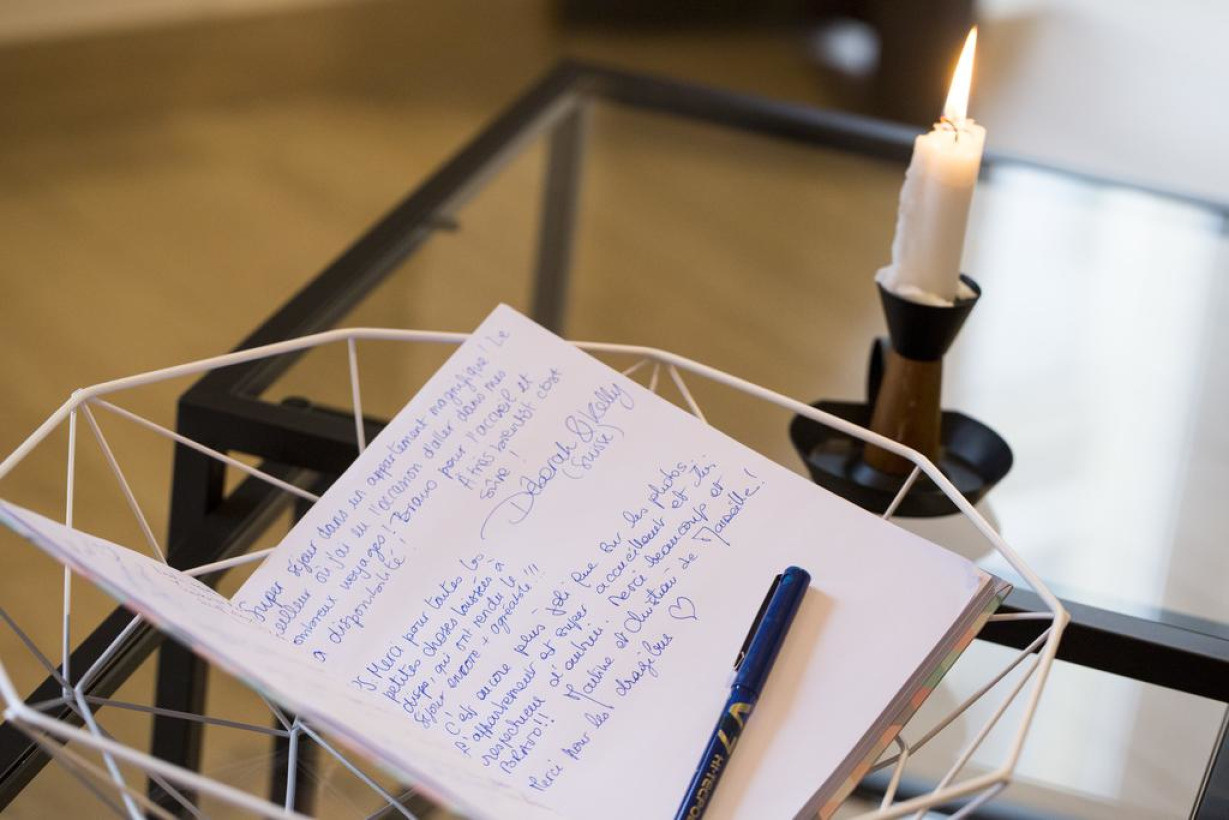 Super séjour dans un appartement magnifique! Le
meilleur où j'ai eu l'occasion d'aller dans mes
nombreux voyages! Bravo pour l'accueil et
la disponibilité! À très bientôt c'est
sûre!
Deborah & Kelly
(Suisse)
Merci pour toutes les
petites choses laissées à
dispo, qui ont rendu le
séjour encore + agréable!!
C'est encore plus joli que sur les photos..
L'appartement est super accueillant et tu
respectueux d'autrui. Merci beaucoup et
BRAVO!! Martine et Christian de Marseille!
Merci pour les dragibus ♡
V7 HI-TECPO